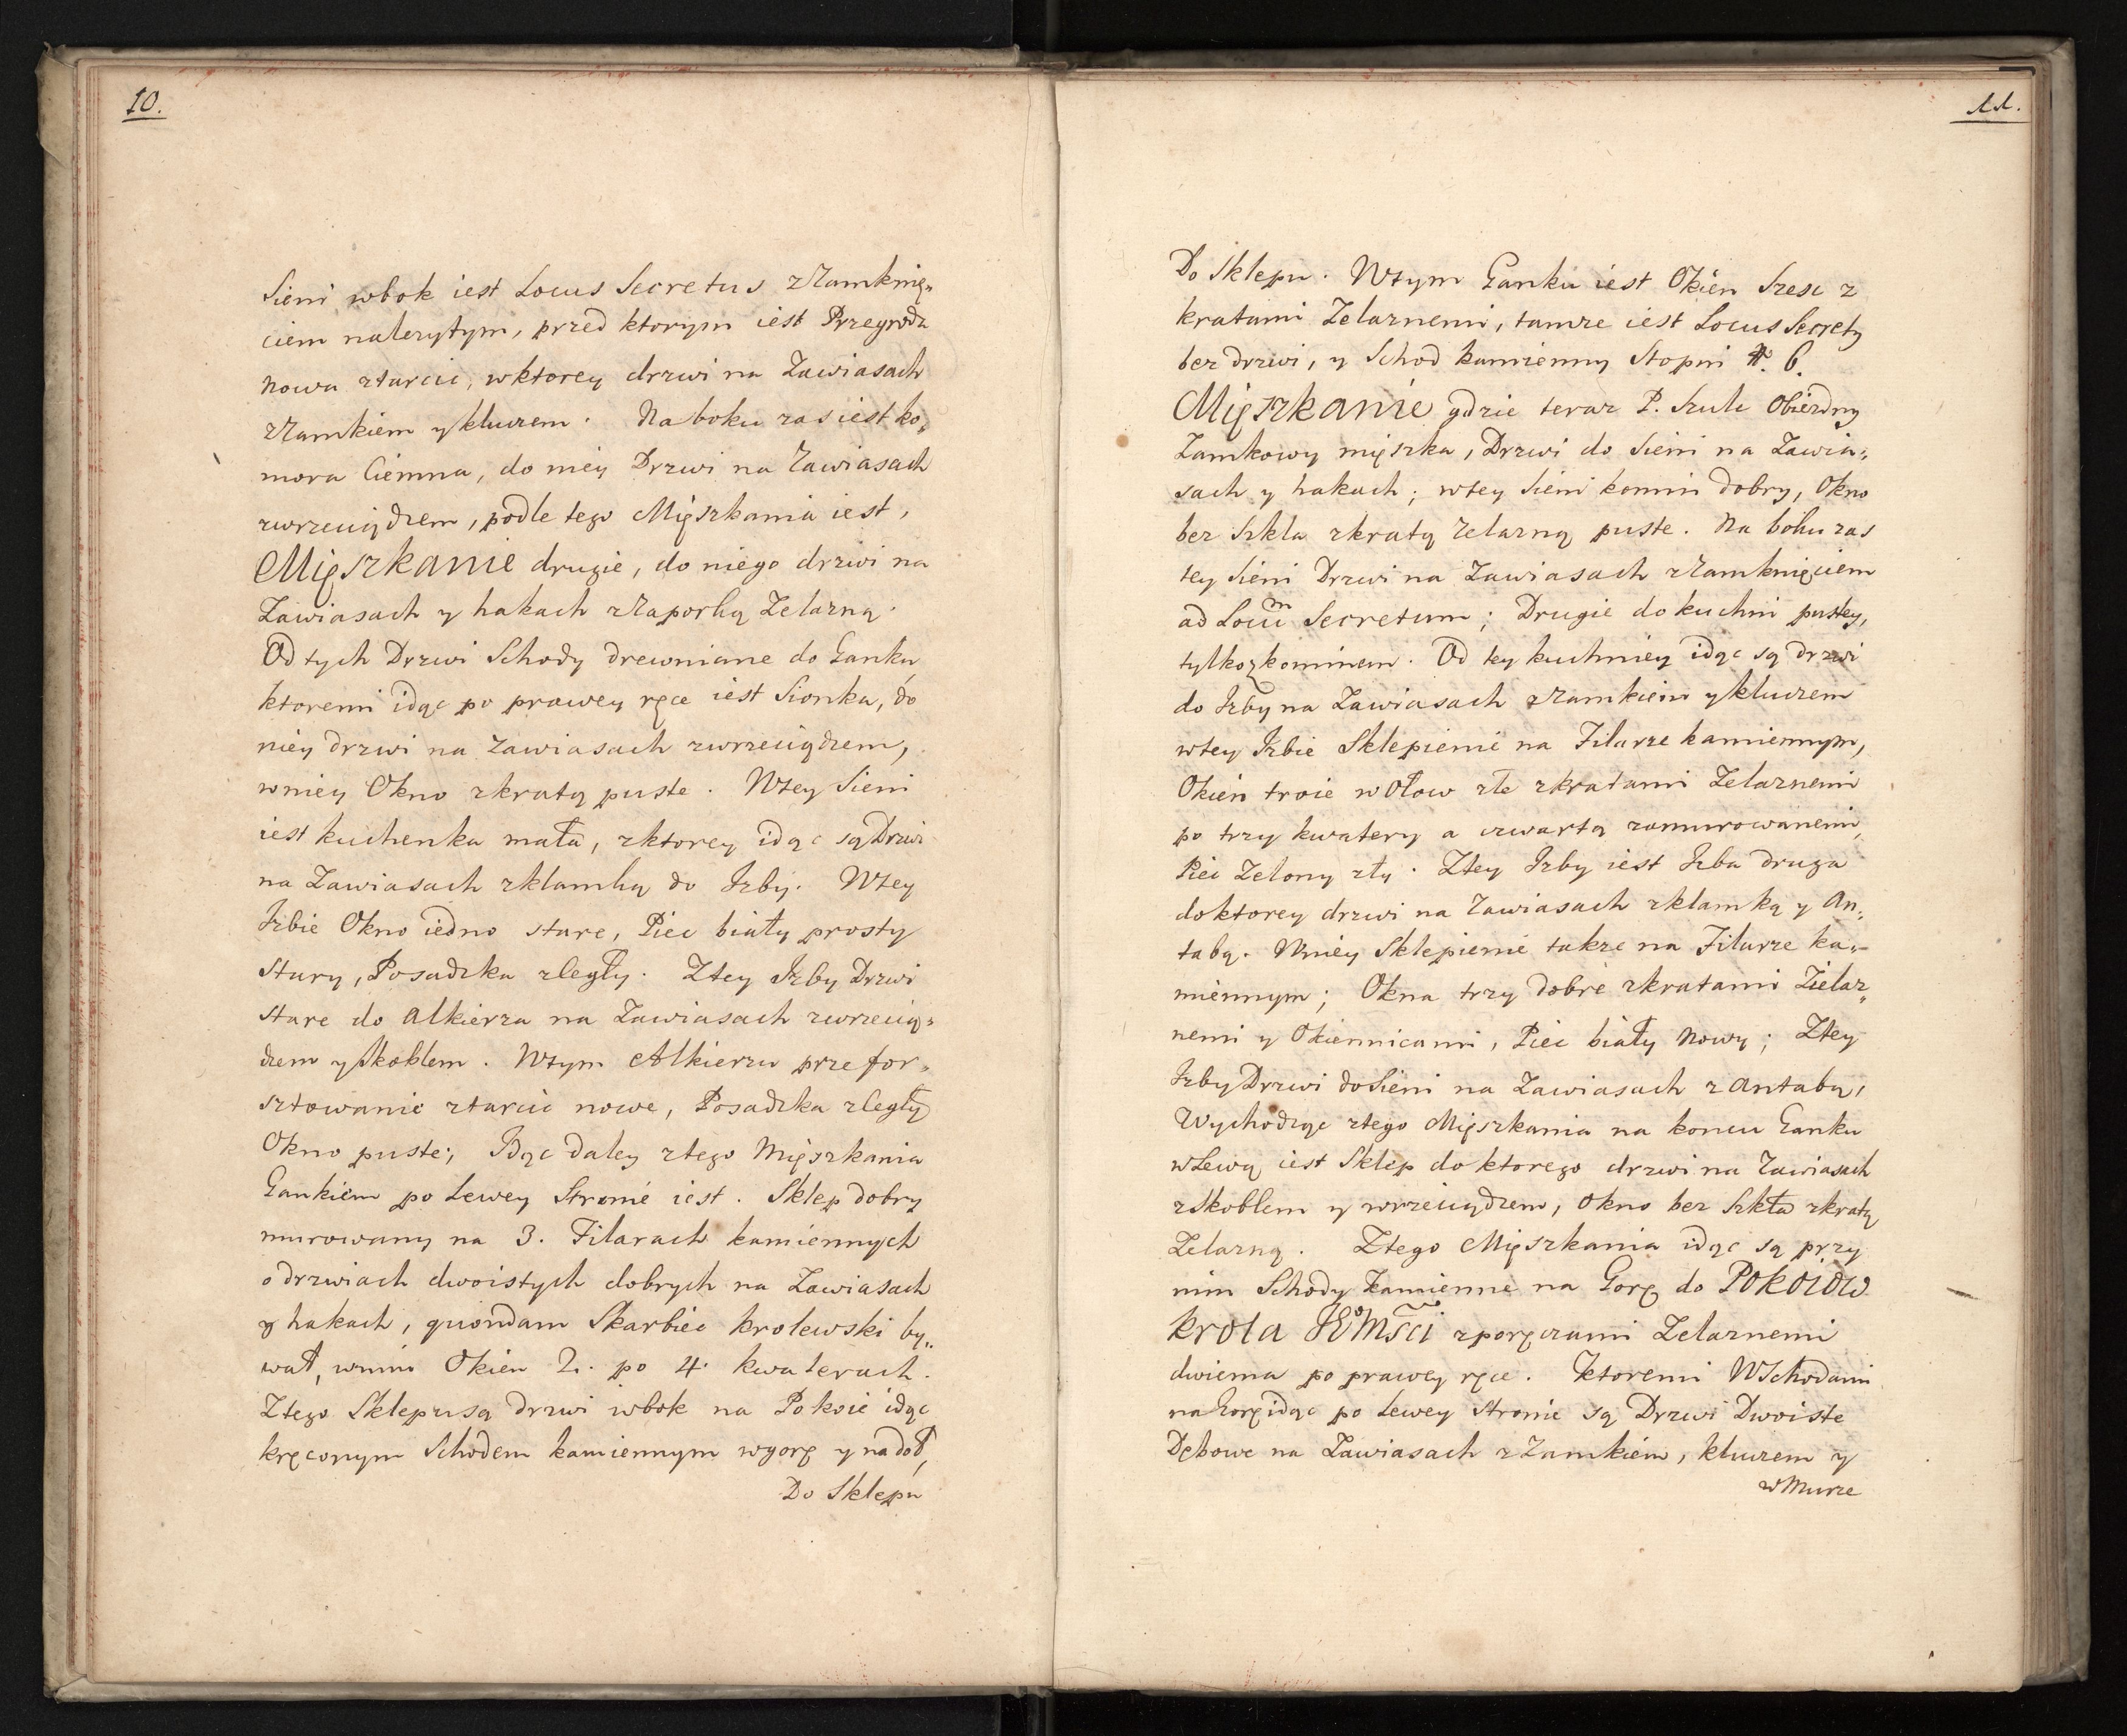 10.
Sieni wbok iest Locus Secretus zZamknię„
ciem należytym, przed ktorym iest Przegroda
nowa ztarcic, wktorey drzwi na Zawiasach
zZamkiem y kluczem. Na boku zas iest ko„
mora Ciemna, do niey Drzwi na Zawiasach
zwrzeciądzem, podle tego Mięszkania iest,
Mięszkanie drugie, do niego drzwi na
Zawiasach y hakach zZaporką Zelazną.
Od tych Drzwi Schody drewniane do Ganku
ktoremi idąc po prawey ręce iest Sionka, do
niey drzwi na zawiasach zwrzeciądzem,
wniey Okno zkratą puste. Wtey Sieni
iest kuchenka mała, zktorey idąc są Drzwi
na Zawiasach zklamką do Izby. Wtey
Izbie Okno iedno stare, Piec biały prosty
Stary, Posadzka zCegły. Ztey Izby Drzwi
stare do alkierza na Zawiasach zwrzecią„
dzem y Skoblem. Wtym Alkierzu przefor„
sztowanie ztarcic nowe, Posadzka zCegły
Okno puste; Idąc daley ztego Mięszkania
Gankiem po Lewey Stronie iest. Sklep dobry
murowany na 3. Filarach kamiennych
o drzwiach dwoistych dobrych na Zawiasach
y hakach, quondam Skarbiec krolewski by„
wał, wnim Okien 2. po 4. kwaterach.
Ztego Sklepu są drzwi wbok na Pokoie idąc
kręconym Schodem kamiennym wgorę y na doł,
Do Sklepu
11.
Do Sklepu. Wtym Ganku iest Okien Szesc z
kratami Zelaznemi, tamze iest Locus Secrety
bez drzwi, y Schod kamienny Stopni N. 6.
Mięszkanie gdzie teraz P. Szulc Obiezdny
Zamkowy mięszka, Drzwi do Sieni na Zawia„
sach y hakach; wtey Sieni komin dobry, Okno
bez Szkla zkratą zelazną puste. Na boku zas
tey Sieni Drzwi na Zawiasach zZamknięciem
ad Locum Secretum; Drugie do kuchni pustey,
tylko zkominem. Od tey kuchniey idąc są drzwi
do Izby na Zawiasach zZamkiem y kluczem
wtey Izbie Sklepienie na Filarze kamiennym,
Okien troie wOłow złe zkratami Zelaznemi
po trzy kwatery a czwartą zamurowanemi,
Piec Zelony zły. Ztey Izby iest Izba druga
doktorey drzwi na Zawiasach zklamką y An„
tabą. Wniey Sklepienie takze na Filarze ka„
miennym; Okna trzy dobre zkratami Zielaz„
nemi y Okiennicami, Piec biały Nowy; Ztey
Izby Drzwi doSieni na Zawiasach z antabą,
Wychodząc ztego Mięszkania na koncu Ganku
wLewą iest Sklep do ktorego drzwi na Zawiasach
zSkoblem y wrzeciądzem, Okno bez Szkła zkratą
Zelazną. Ztego Mięszkania idąc są przy
nim Schody kamienne na Gorę do Pokoiow
Krola JEoMsci zporęczami Zelaznemi
dwiema po prawey ręce. Ktoremi WSchodami
na Gorę idąc po Lewey stronie są Drzwi Dwoiste
Dębowe na Zawiasach zZamkiem, kluczem y
wMurze